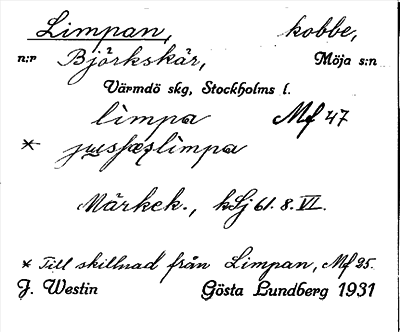 Limpan, kobbe,
n:r Björkskär, Möja s:n
Värmdö skg, Stockholms l.
limpa Mf 47
* limpa
Märkek., kSj 61. 8. VI.
* Till skillnad från Limpan, Mf 25.
J. Westin Gösta Lundberg 1931